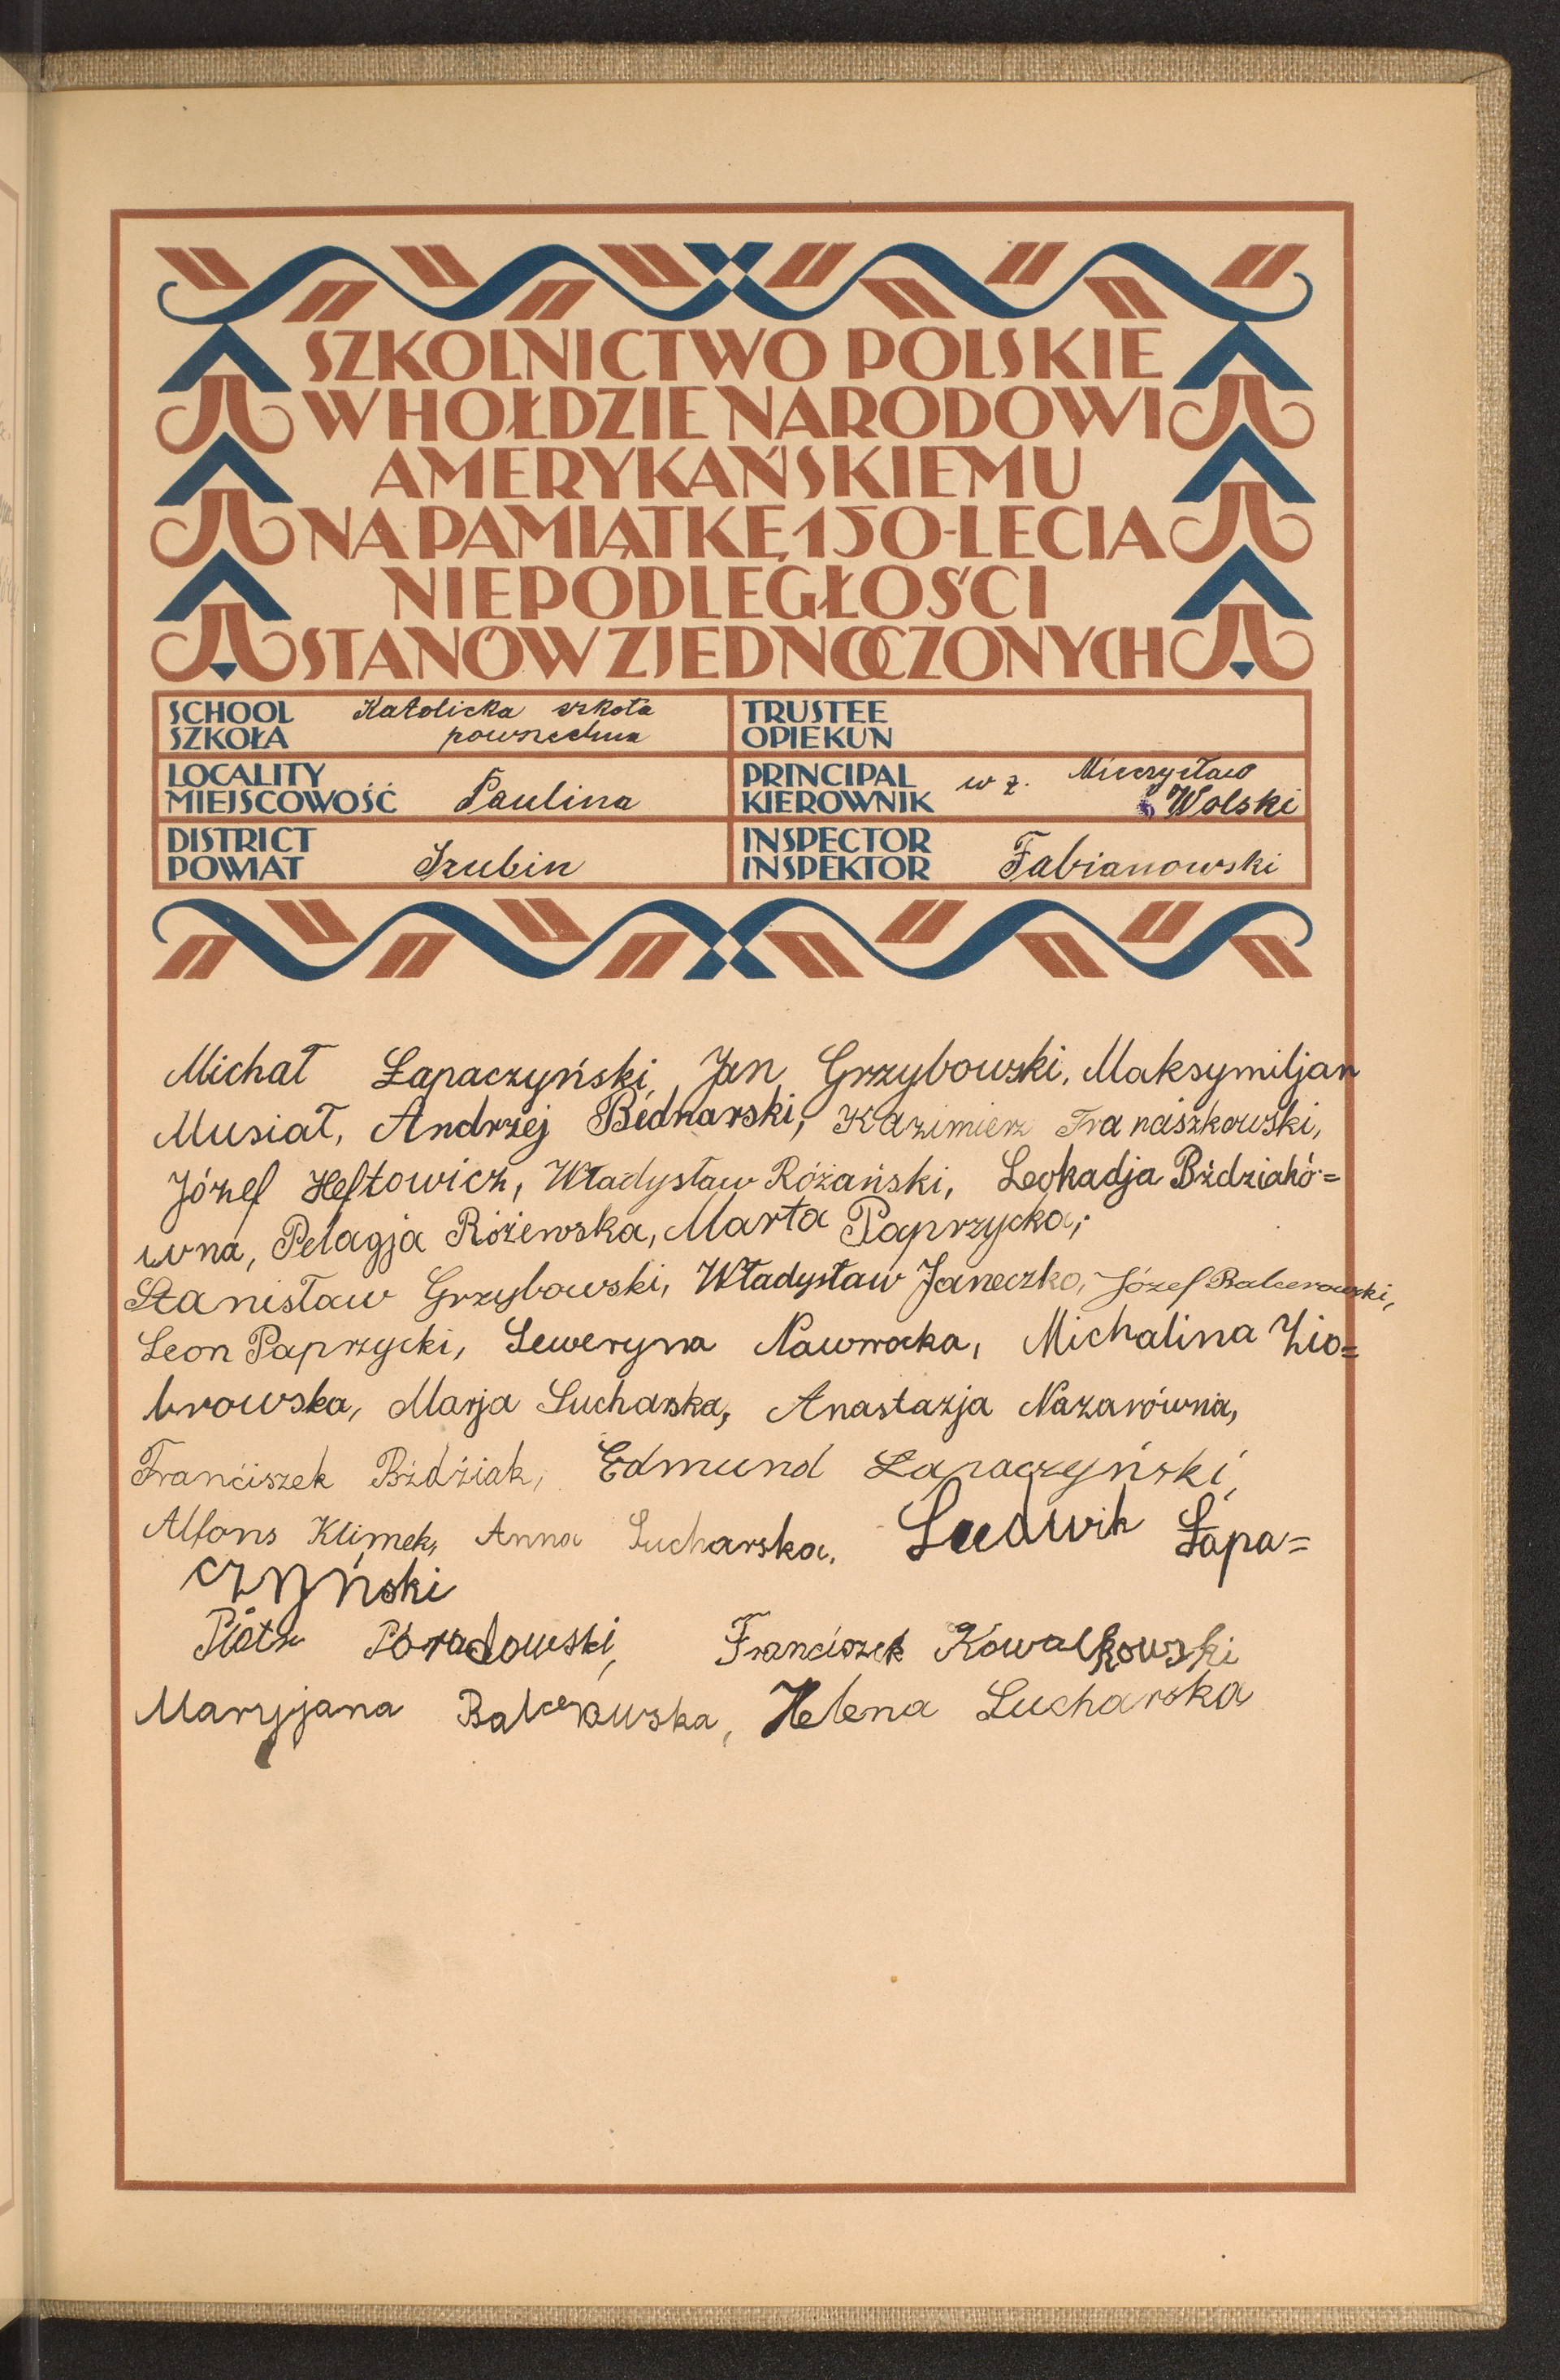 SZKOLNICTWO POLSKIE
W HOŁDZIE NARODOWI
AMERYKAŃSKIEMU
NA PAMIĄTKĘ 150-LECIA
NIEPODLEGŁOŚCI
STANÓW ZJEDNOCZONYCH
SCHOOL Katolicka szkoła
SZKOŁA powszechna
TRUSTEE
OPIEKUN
LOCALITY
MIEJSCOWOŚĆ Paulina
PRINCIPAL w z. Mieczysław
KIEROWNIK Wolski
DISTRICT
POWIAT Szubin
INSPECTOR
INSPEKTOR Fabianowski
Michał Łapaczyński, Jan Grzybowski, Maksymiljan
Musiał, Andrzej Bednarski, Kazimierz Franciszkowski,
Józef Heftowicz, Władysław Różański, Leokadja Bździakó=
wna, Pelagja Różewska, Marta Paprzycka,
Stanisław Grzybowski, Władysław Janeczko, Józef Balcerowski,
Leon Paprzycki, Seweryna Nawrocka, Michalina Zio=
browska, Marja Sucharska, Anastazja Nazarówna,
Franciszek Bździak, Edmund Łapaczyński,
Alfons Klimek, Anna Sucharska, Ludwik Łapa=
czyński
Piotr Poradowski, Franciszek Kowalkowski
Maryjana Balcerowska, Helena Sucharska